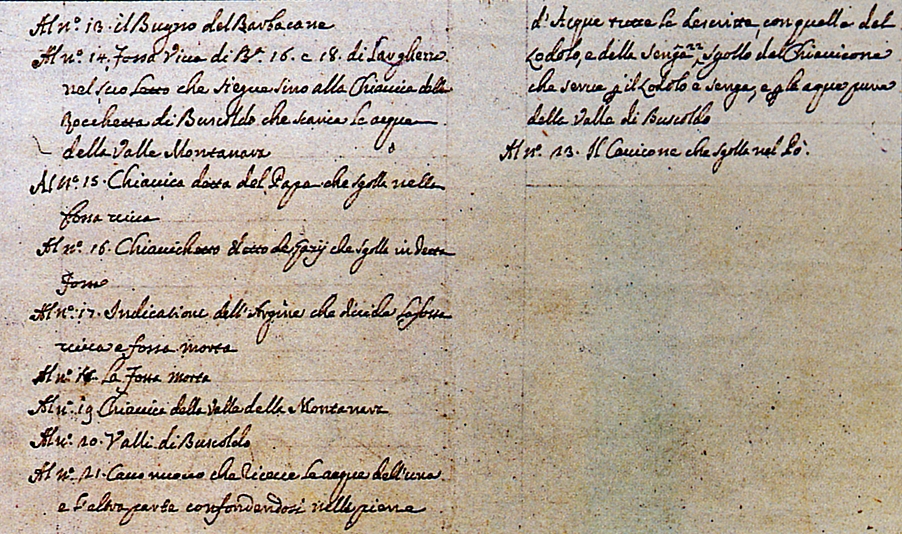 Al n.º 13. il Bugno del Barbacane
Al n.º 14. Fossa Viva di B.ª 16. e 18. di Largheza
nel suo Letto che siegue sino alla Chiavica della
Rocchetta di Buscoldo che scarica le acque
della Valle Montanara
Al n.º 15. Chiavica detta del Papa che sgolla nella
fossa viva
Al n.º 16. Chiavichetto detto de che sgolla in detta
fossa
Al n.º 17. Indicatione dell'Argine che divide la fossa
viva e fossa morta
Al n.º 18. La Fossa morta
Al n.º 19 Chiavica della valle della Montanara
Al n.º 20. Valli di Buscoldo
Al n.º 21. Cavo nuovo che riceve le acque dell'una
e l'altra parte confondendosi nelle piene
d'Acque tutte le descritte, con quelle del
Lodolo, e della Senga, 22 sgollo del Chiavicone
che serve p il Lodolo e Senga, e p le acque pure
della Valle di Buscoldo
Al n.º 23. Il Cavicone che sgolla nel Pò.